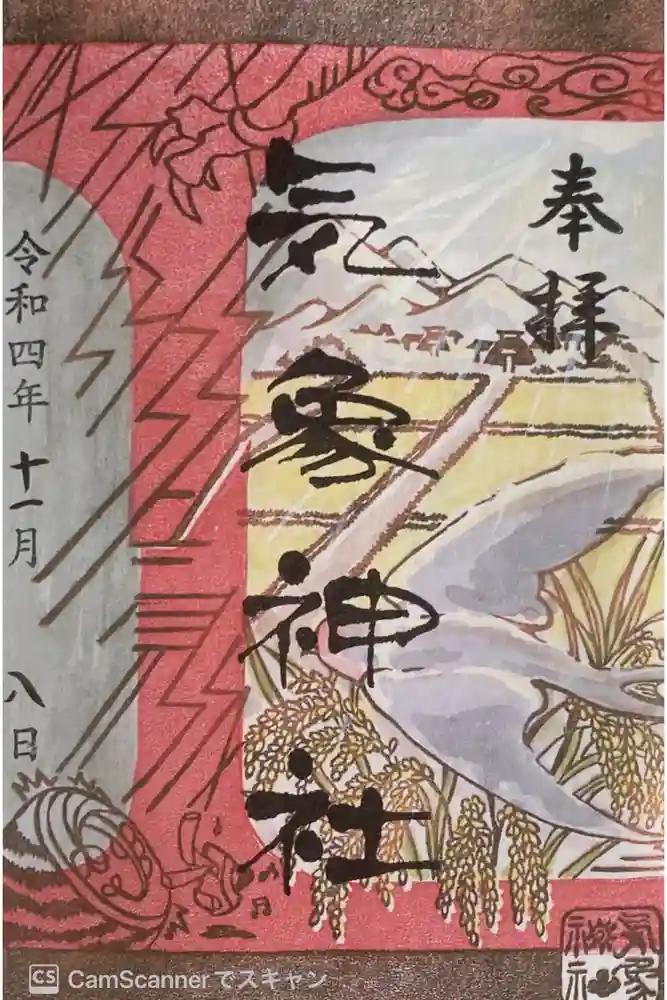 奉拝
気象神社
令和四年十一月八日
CS CamScannerでスキャン